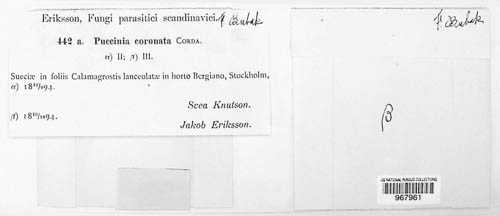 Eriksson, Fungi parasitici scandinavici. F. Bubak
442 a. Puccinia coronata CORDA.
α) II; β) III.
Sueciæ in foliis Calamagrostis lanceolatæ in horto Bergiano, Stockholm,
Svea Knutson.
Jakob Eriksson.
F. Bubak
β
US NATIONAL FUNGUS COLLECTIONS
967961